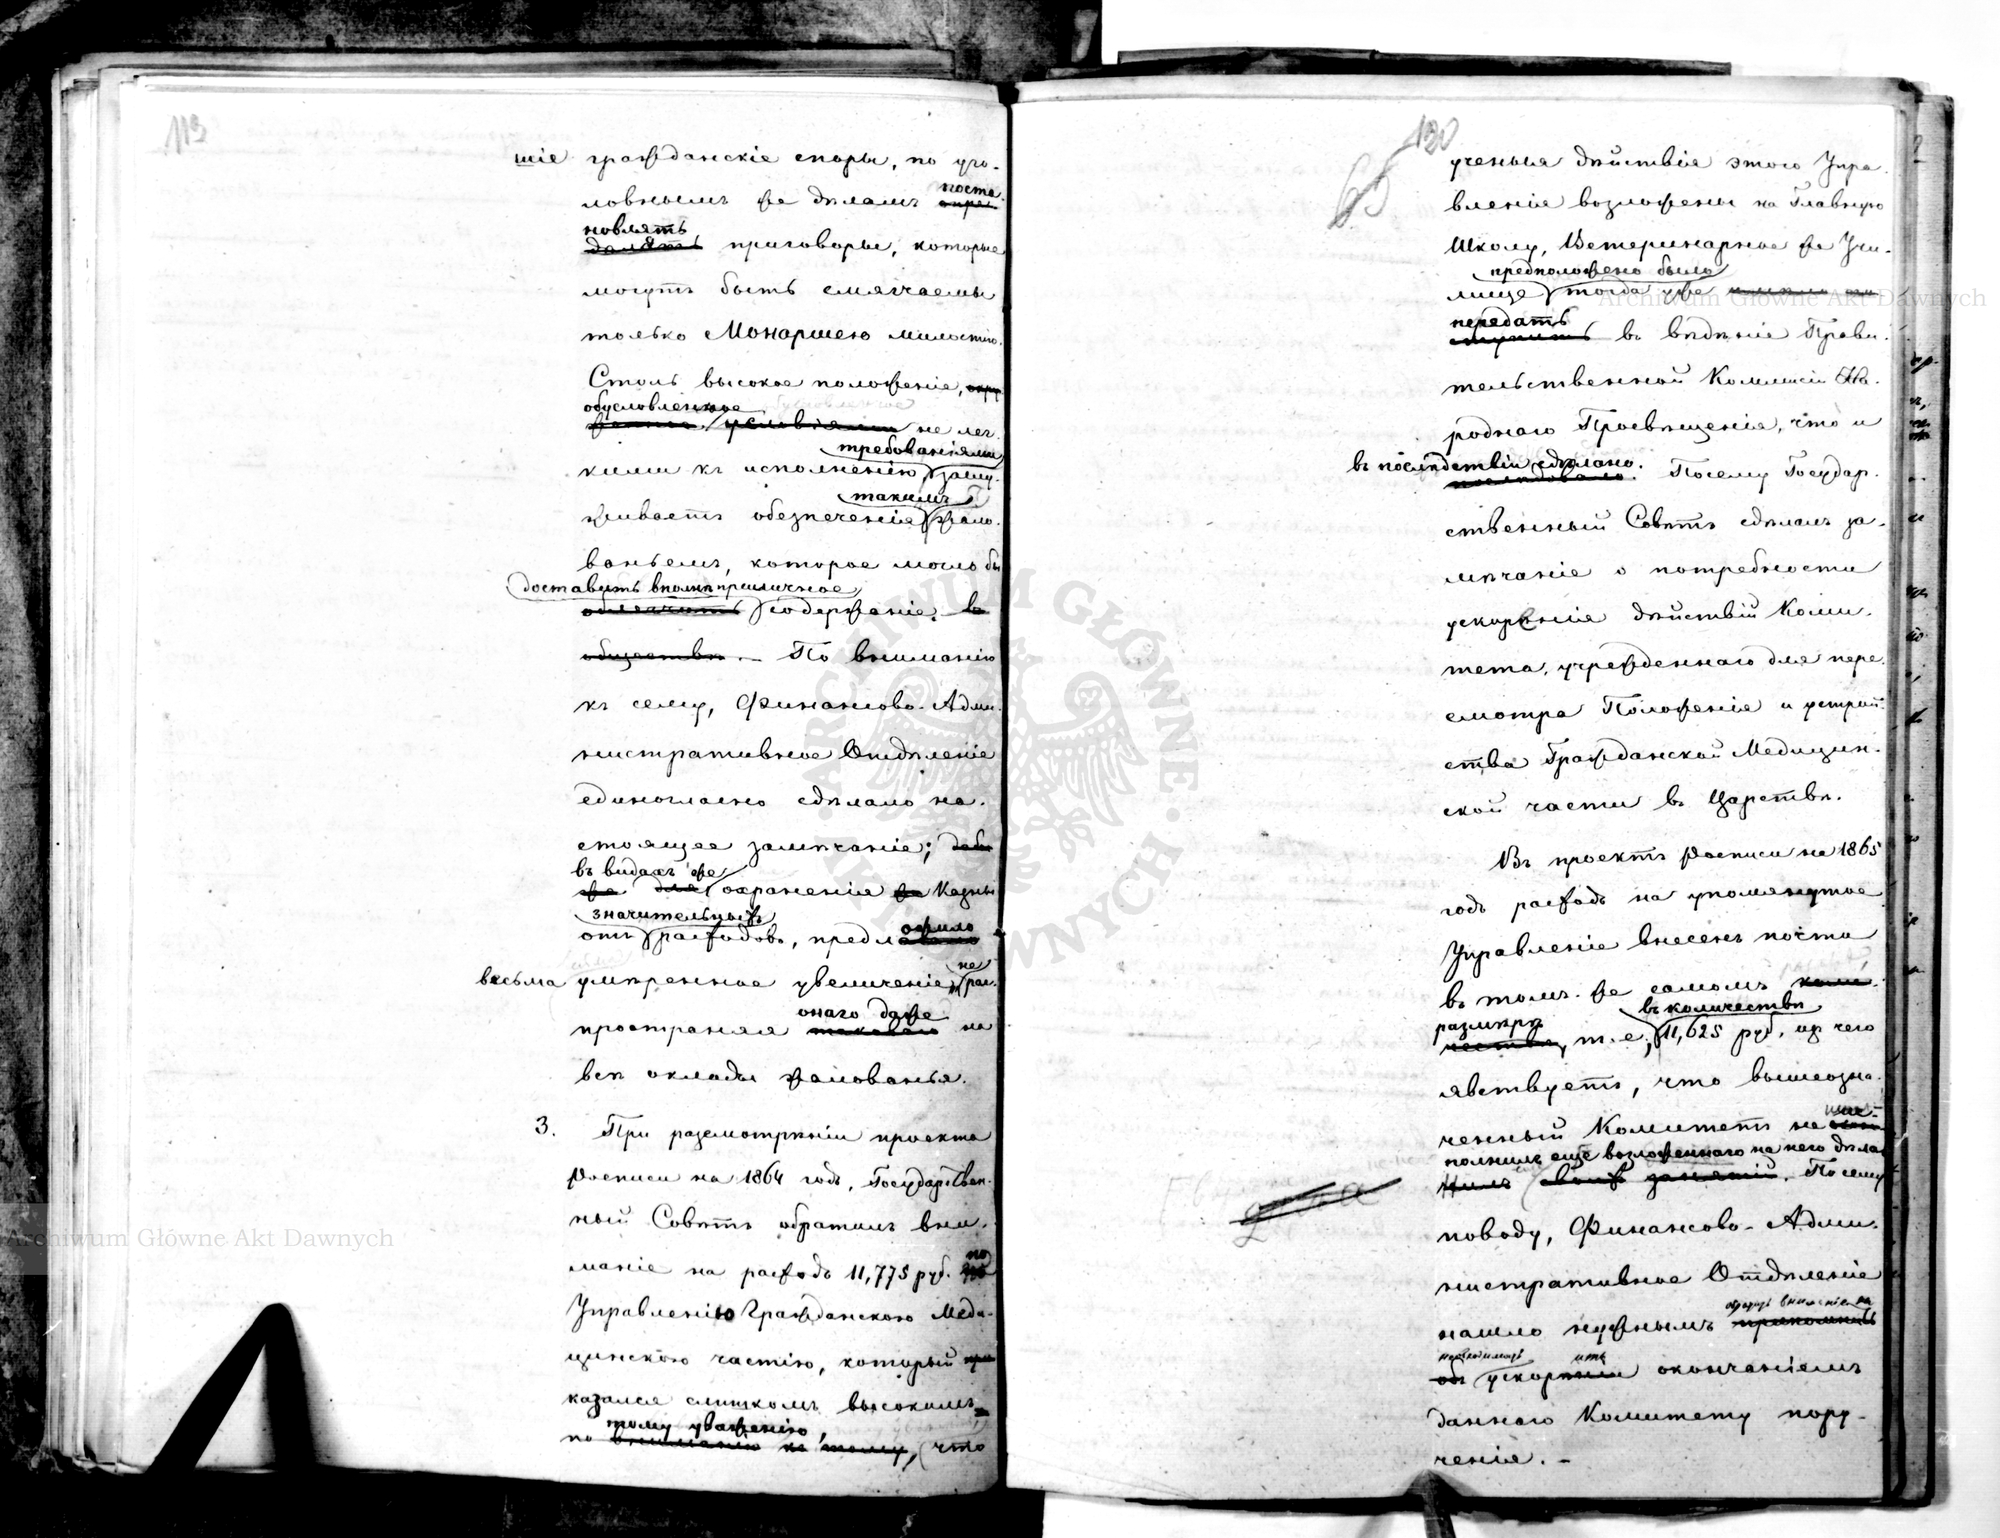 113
шіе гражданскіе споры, по уго-
ловнымъ же дѣламъ поста
новлять
делять приговоры, которые
могутъ быть смягчаемы
только Монаршею милостію.
Столь высокое положеніе,
обусловленное
условіями не лег-
требованіями
кими къ исполненію, заслу-
такимъ
живаетъ обезпеченія жало-
ваньемъ, которое могло бы
доставить вполнѣ приличное
облегчить содержаніе въ
обществѣ. — По вниманію
къ сему, Финансово-Адми-
нистративное Отдѣленіе
единогласно сдѣлало на-
стоящее замѣчаніе;
въ видахъ же
же для охраненія же Казны
значительныхъ
отъ расходовъ, предложило
весьма умѣренное увеличеніе, не рас-
онаго даже
пространяя таковаго на
всѣ оклады жалованья.
3. При разсмотрѣніи проекта
Росписи на 1864 годъ, Государствен-
ный Совѣтъ обратилъ вни-
маніе на расходъ 11,775 руб. по
Управленію Гражданскою Меди-
цинскою частію, который
казался слишкомъ высокимъ,
тому уваженію,
по вниманію къ тому, что
130
65
ученыя дѣйствія этого Упра-
вленія возложены на Главную
Школу, Ветеринарное же Учи-
предположено было
лище тогда уже
передать
ступить въ вѣдѣніе Прави-
тельственной Коммисіи На-
роднаго Просвѣщенія, что и
въ послѣдствіи сдѣлано.
послѣдовало. Посему Государ-
ственный Совѣтъ сдѣлалъ за-
мѣчаніе о потребности
ускоренія дѣйствій Коми-
тета, учрежденнаго для пере-
смотра Положенія и устрой-
ства Гражданской Медицин-
ской части въ Царствѣ.
Въ проектъ Росписи на 1865
годъ расходъ на упомянутое
Управленіе внесенъ почти
въ томъ же самомъ коли-
размѣрѣ въ количествѣ
чествѣ, т. е. 11,625 руб., изъ чего
явствуетъ, что вышеозна-
ченный Комитетъ не
полнилъ еще возложеннаго на него дѣла
нилъ своихъ занятій. По сему
поводу, Финансово-Адми-
нистративное Отдѣленіе
обратить вниманіе на
нашло нужнымъ припомнить
объ ускореніи окончаніемъ
даннаго Комитету пору-
ченія. —
ARCHIWUM GŁÓWNE AKT DAWNYCH
Archiwum Główne Akt Dawnych
Archiwum Główne Akt Dawnych